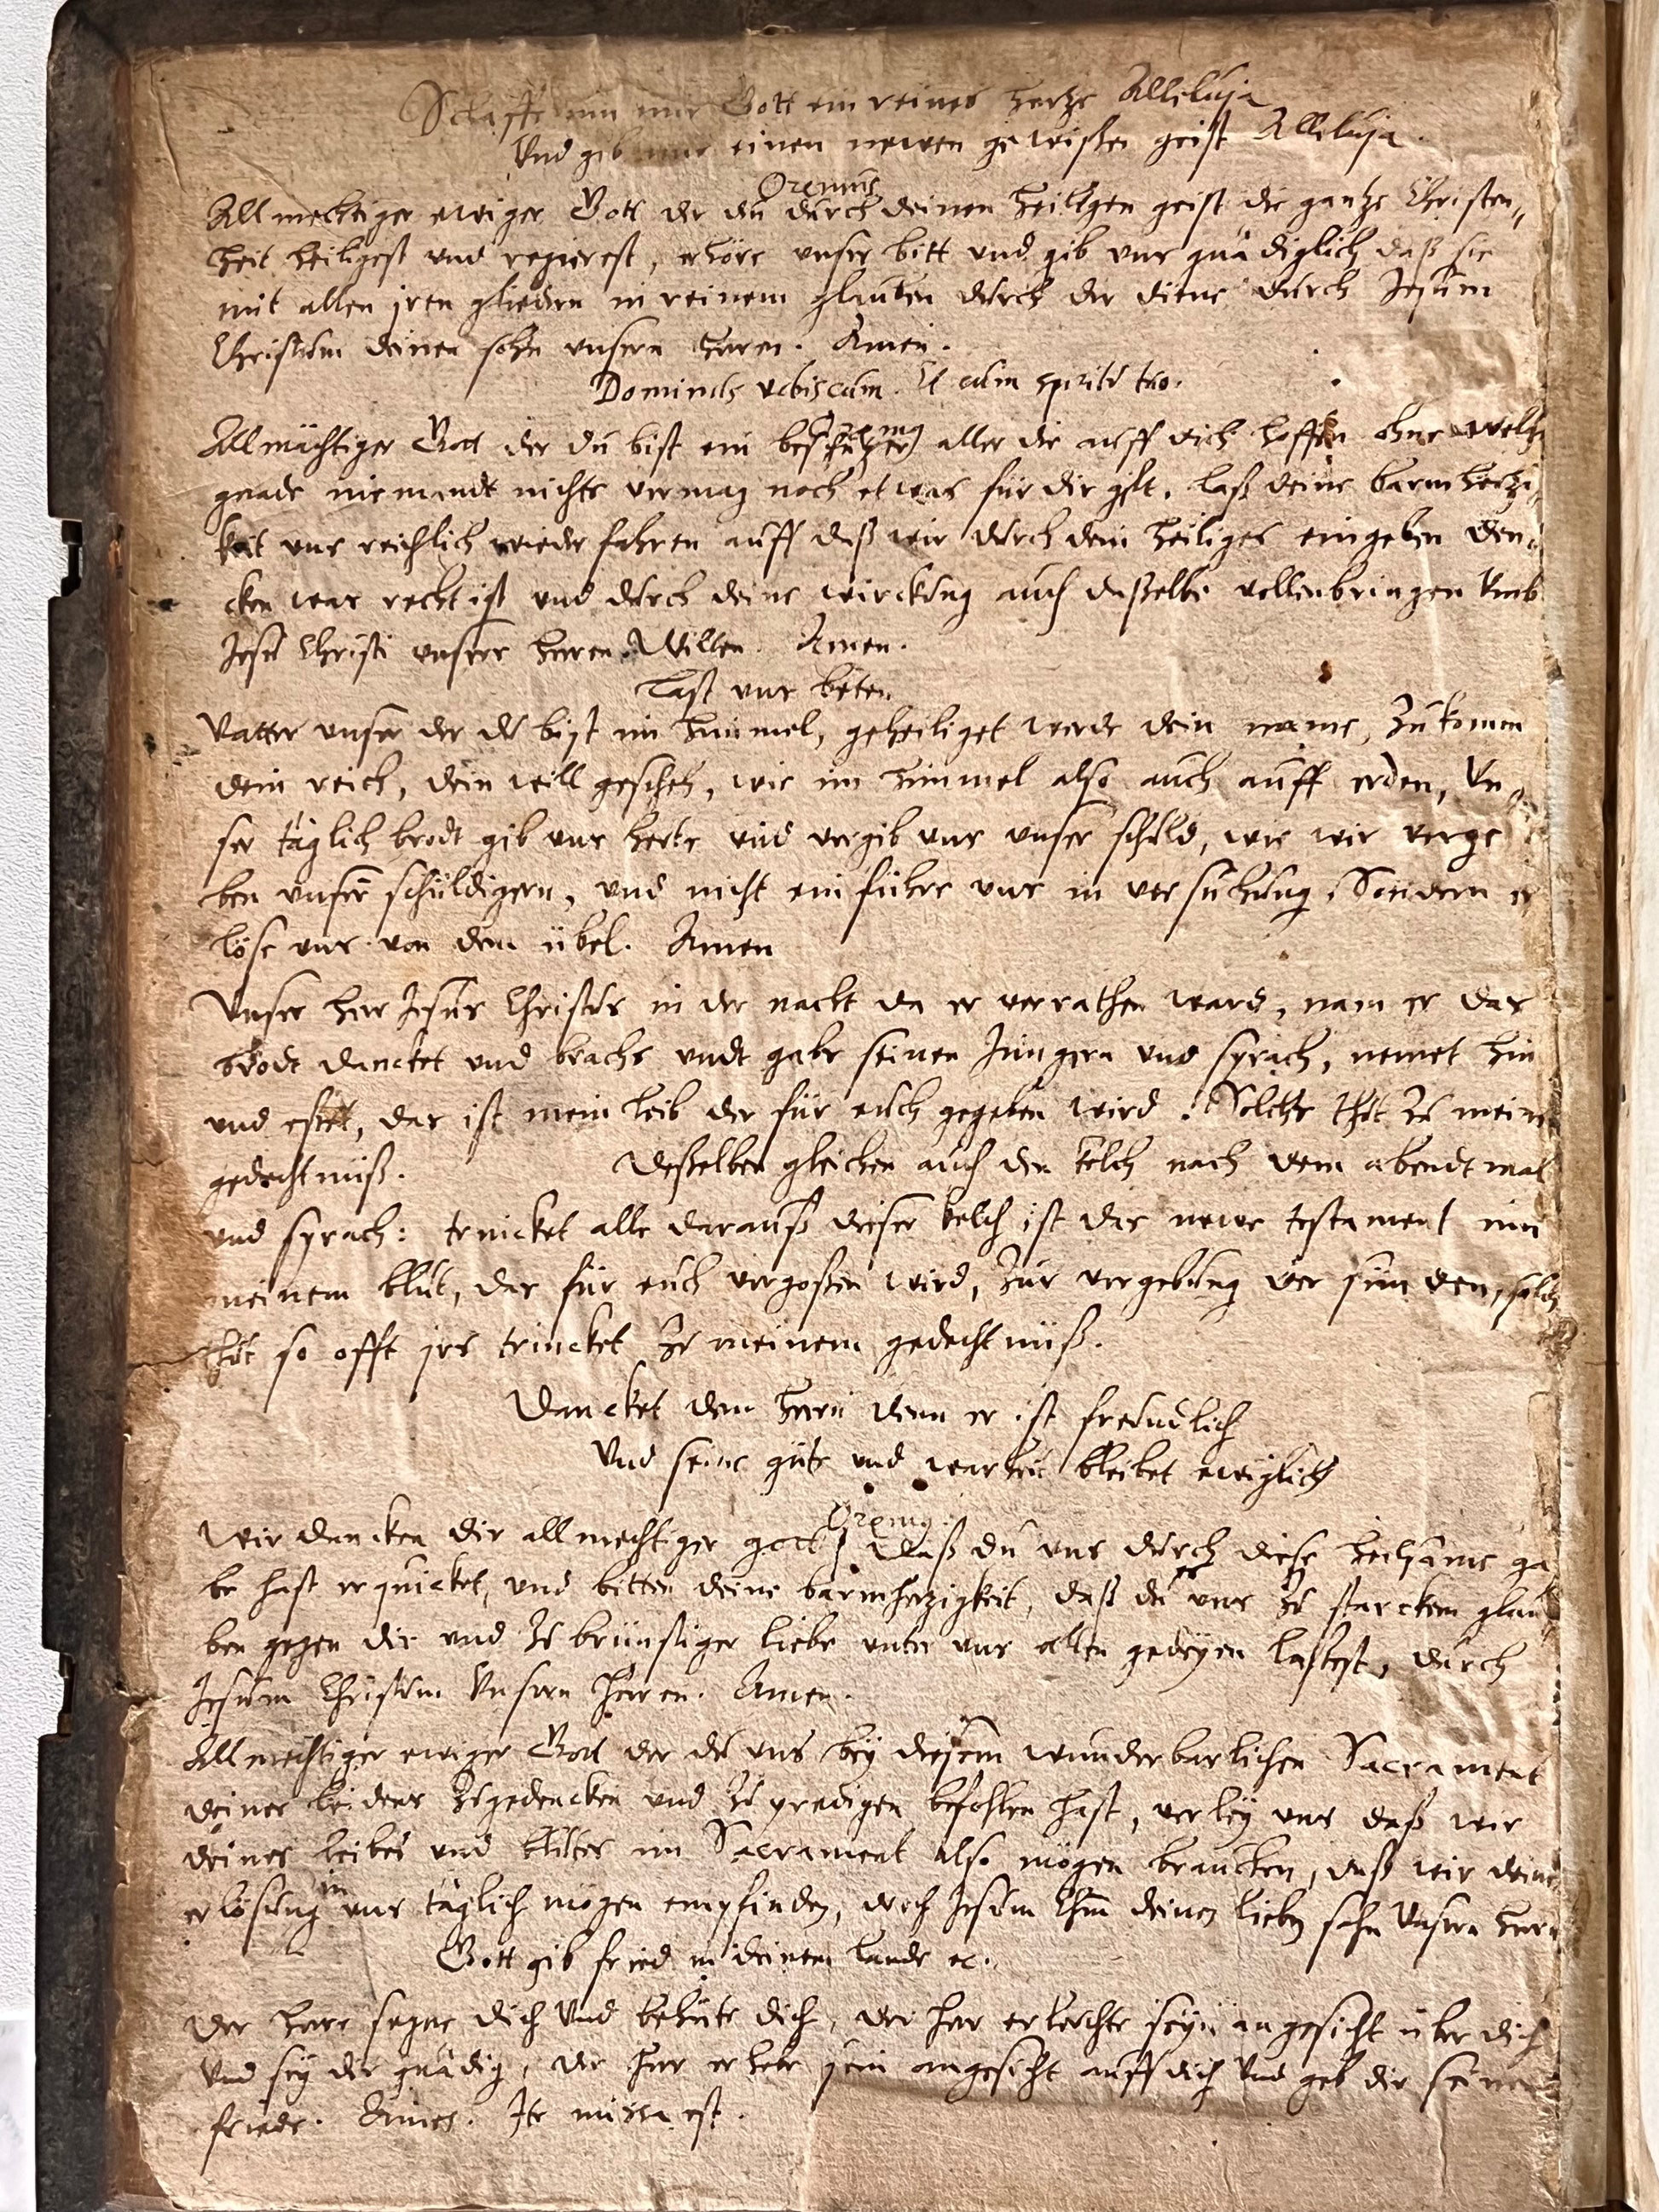 Schaffe inn mir Gott ein reines hertze Alleluja
Und gib mir einen newen gewißen geist Alleluja.
Oremus
Allmechtiger ewiger Gott der du durch deinen heiligen geist die gantze Christen„
heit heiligest und regierest, erhöre unser bitt und gib uns gnädiglich daß sie
mit allen iren gliedern in reinem glauben durch der diene durch Jesum
Christum deinen sohn unsern herrn. Amen.
Dominus vobiscum. Et cum spiritu tuo.
Oremus
Allmächtiger Gott der du bist ein beschützer aller die auff dich hoffen ohne welch
gnade niemandt nichts vermag noch etwas für dir gilt, laß deine barmhertzi„
keit uns reichlich wiederfahren auff daß wir durch dein heiliges eingeben den„
cken was recht ist und durch deine wirckung auch daßelbe vollenbringen Umb
Jesu Christi unsers herren Willen. Amen.
Last uns beten
Vatter unser der du bist im himmel, geheiliget werde dein name, Zukomm
dein reich, dein will gescheh, wie im himmel also auch auff erden, Un„
ser täglich brodt gib uns heute und vergib uns unser schuld, wie wir verge
ben unsern schuldigern, und nicht einführe uns in versuchung, Sondern er
löse uns von dem übel. Amen
Unser herr Jesus Christus in der nacht da er verrathen ward, nam er das
brodt dancket und brachs undt gabs seinen Jüngern und sprach, nemet hin
und esset, das ist mein leib der für euch gegeben wird. Solchs thut zu mein
gedechtniß. Deßelben gleichen auch den kelch nach dem abendtmal
und sprach: trincket alle darauß dieser kelch ist das newe testament inn
meinem blut, das für euch vergoßen wird, zur vergebung der sünden, solch
thut so offt irs trincket zu meinem gedechtniß.
Dancket dem herrn denn er ist freundlich
Und seine güte und warheit bleibet ewiglich
Oremus.
Wir dancken dir allmechtiger gott daß du uns durch diese heilsame ga
be hast erquicket, und bitten deine barmhertzigkeit, daß du uns zu starckem glau
ben gegen dir und zu brünstiger liebe unter uns allen gedeyen lassest, durch
Jesum Christum Unsern Herren. Amen.
Allmechtiger ewiger Gott der du uns bey diesem wunderbarlichen Sacrament
deines leidens zugedencken und zu predigen befohlen hast, verley uns daß wir
deines leibes und blutes im Sacrament also mögen brauchen, daß wir deine
erlösung in uns täglich mögen empfinden, durch Jesum Chm deinen lieben sohn Unsern herrn
Gott gib fried in deinem lande etc.
Der herr segne dich Und behüte dich, der herr erleuchte seyn angesicht über dich
Und sey dir gnädig, der herr erhebe sein angesicht auff dich Und geb dir seinen
friede. Amen. Ite missa est.